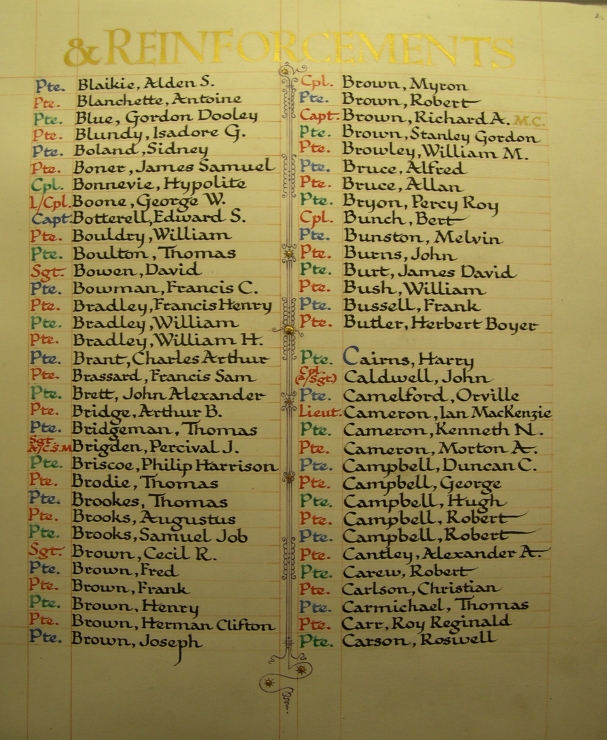 & REINFORCEMENTS
Pte. Blaikie, Alden S.
Pte. Blanchette, Antoine
Pte. Blue, Gordon Dooley
Pte. Blundy, Isadore G.
Pte. Boland, Sidney
Pte. Boner, James Samuel
Cpl. Bonnevie, Hypolite
L/Cpl. Boone, George W.
Capt. Botterell, Edward S.
Pte. Bouldry, William
Pte. Boulton, Thomas
Sgt. Bowen, David
Pte. Bowman, Francis C.
Pte. Bradley, Francis Henry
Pte. Bradley, William
Pte. Bradley, William H.
Pte. Brant, Charles Arthur
Pte. Brassard, Francis Sam
Pte. Brett, John Alexander
Pte. Bridge, Arthur B.
Pte. Bridgeman, Thomas
Sgt. A/C.S.M. Brigden, Percival J.
Pte. Briscoe, Philip Harrison
Pte. Brodie, Thomas
Pte. Brookes, Thomas
Pte. Brooks, Augustus
Pte. Brooks, Samuel Job
Sgt. Brown, Cecil R.
Pte. Brown, Fred
Pte. Brown, Frank
Pte. Brown, Henry
Pte. Brown, Herman Clifton
Pte. Brown, Joseph
Cpl. Brown, Myron
Pte. Brown, Robert
Capt. Brown, Richard A. M.C.
Pte. Brown, Stanley Gordon
Pte. Browley, William M.
Pte. Bruce, Alfred
Pte. Bruce, Allan
Pte. Bryon, Percy Roy
Cpl. Bunch, Bert
Pte. Bunston, Melvin
Pte. Burns, John
Pte. Burt, James David
Pte. Bush, William
Pte. Bussell, Frank
Pte. Butler, Herbert Boyer
Pte. Cairns, Harry
Cpl. (a/Sgt.) Caldwell, John
Pte. Camelford, Orville
Lieut. Cameron, Ian MacKenzie
Pte. Cameron, Kenneth N.
Pte. Cameron, Morton A.
Pte. Campbell, Duncan C.
Pte. Campbell, George
Pte. Campbell, Hugh
Pte. Campbell, Robert
Pte. Campbell, Robert
Pte. Cantley, Alexander A.
Pte. Carew, Robert
Pte. Carlson, Christian
Pte. Carmichael, Thomas
Pte. Carr, Roy Reginald
Pte. Carson, Roswell